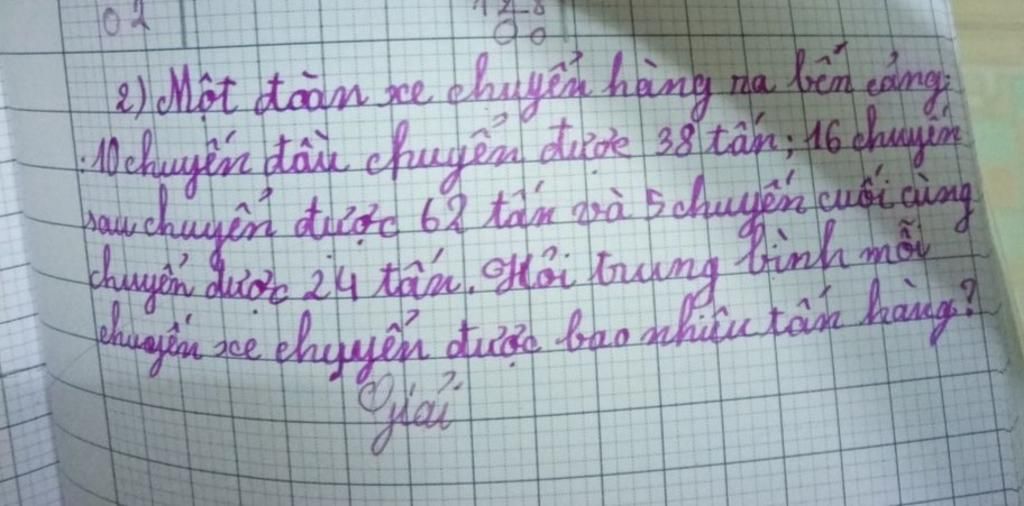 02
2) Một đoàn xe chuyển hàng ra bến cảng:
10 chuyến đầu chuyển được 38 tấn; 16 chuyến
sau chuyển được 62 tấn và 5 chuyến cuối cùng
chuyển được 24 tấn. Hỏi trung bình mỗi
chuyến xe chuyển được bao nhiêu tấn hàng?
Giải